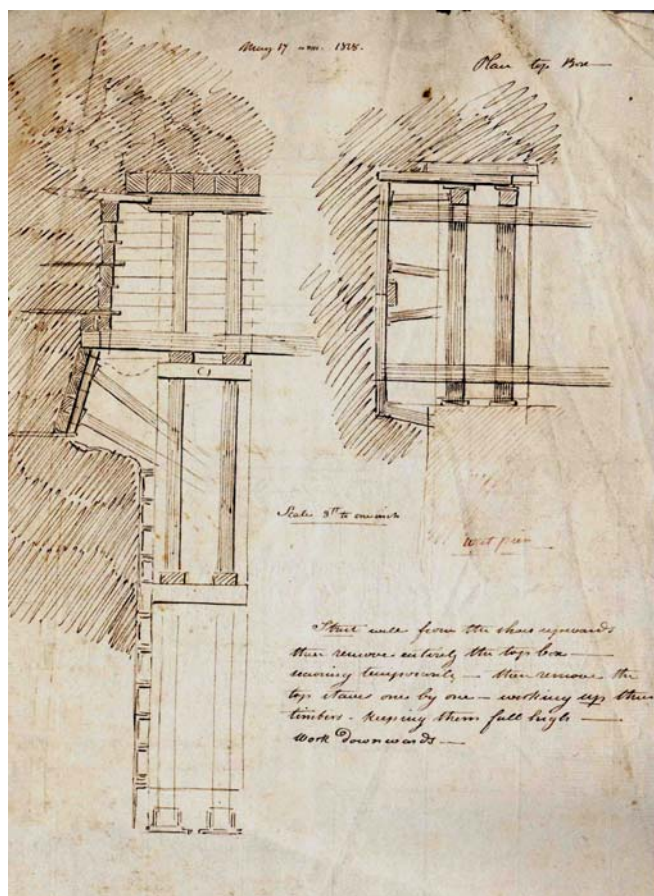 May 17 a.m. 1828.
Plan top Box
C)
Scale 3ft to one inch
West pier
Strut well from the shoes upwards
then remove entirely the top box —
securing temporarily — then remove the
top staves one by one — working up thus
timbers - keeping them full high —
Work downwards —